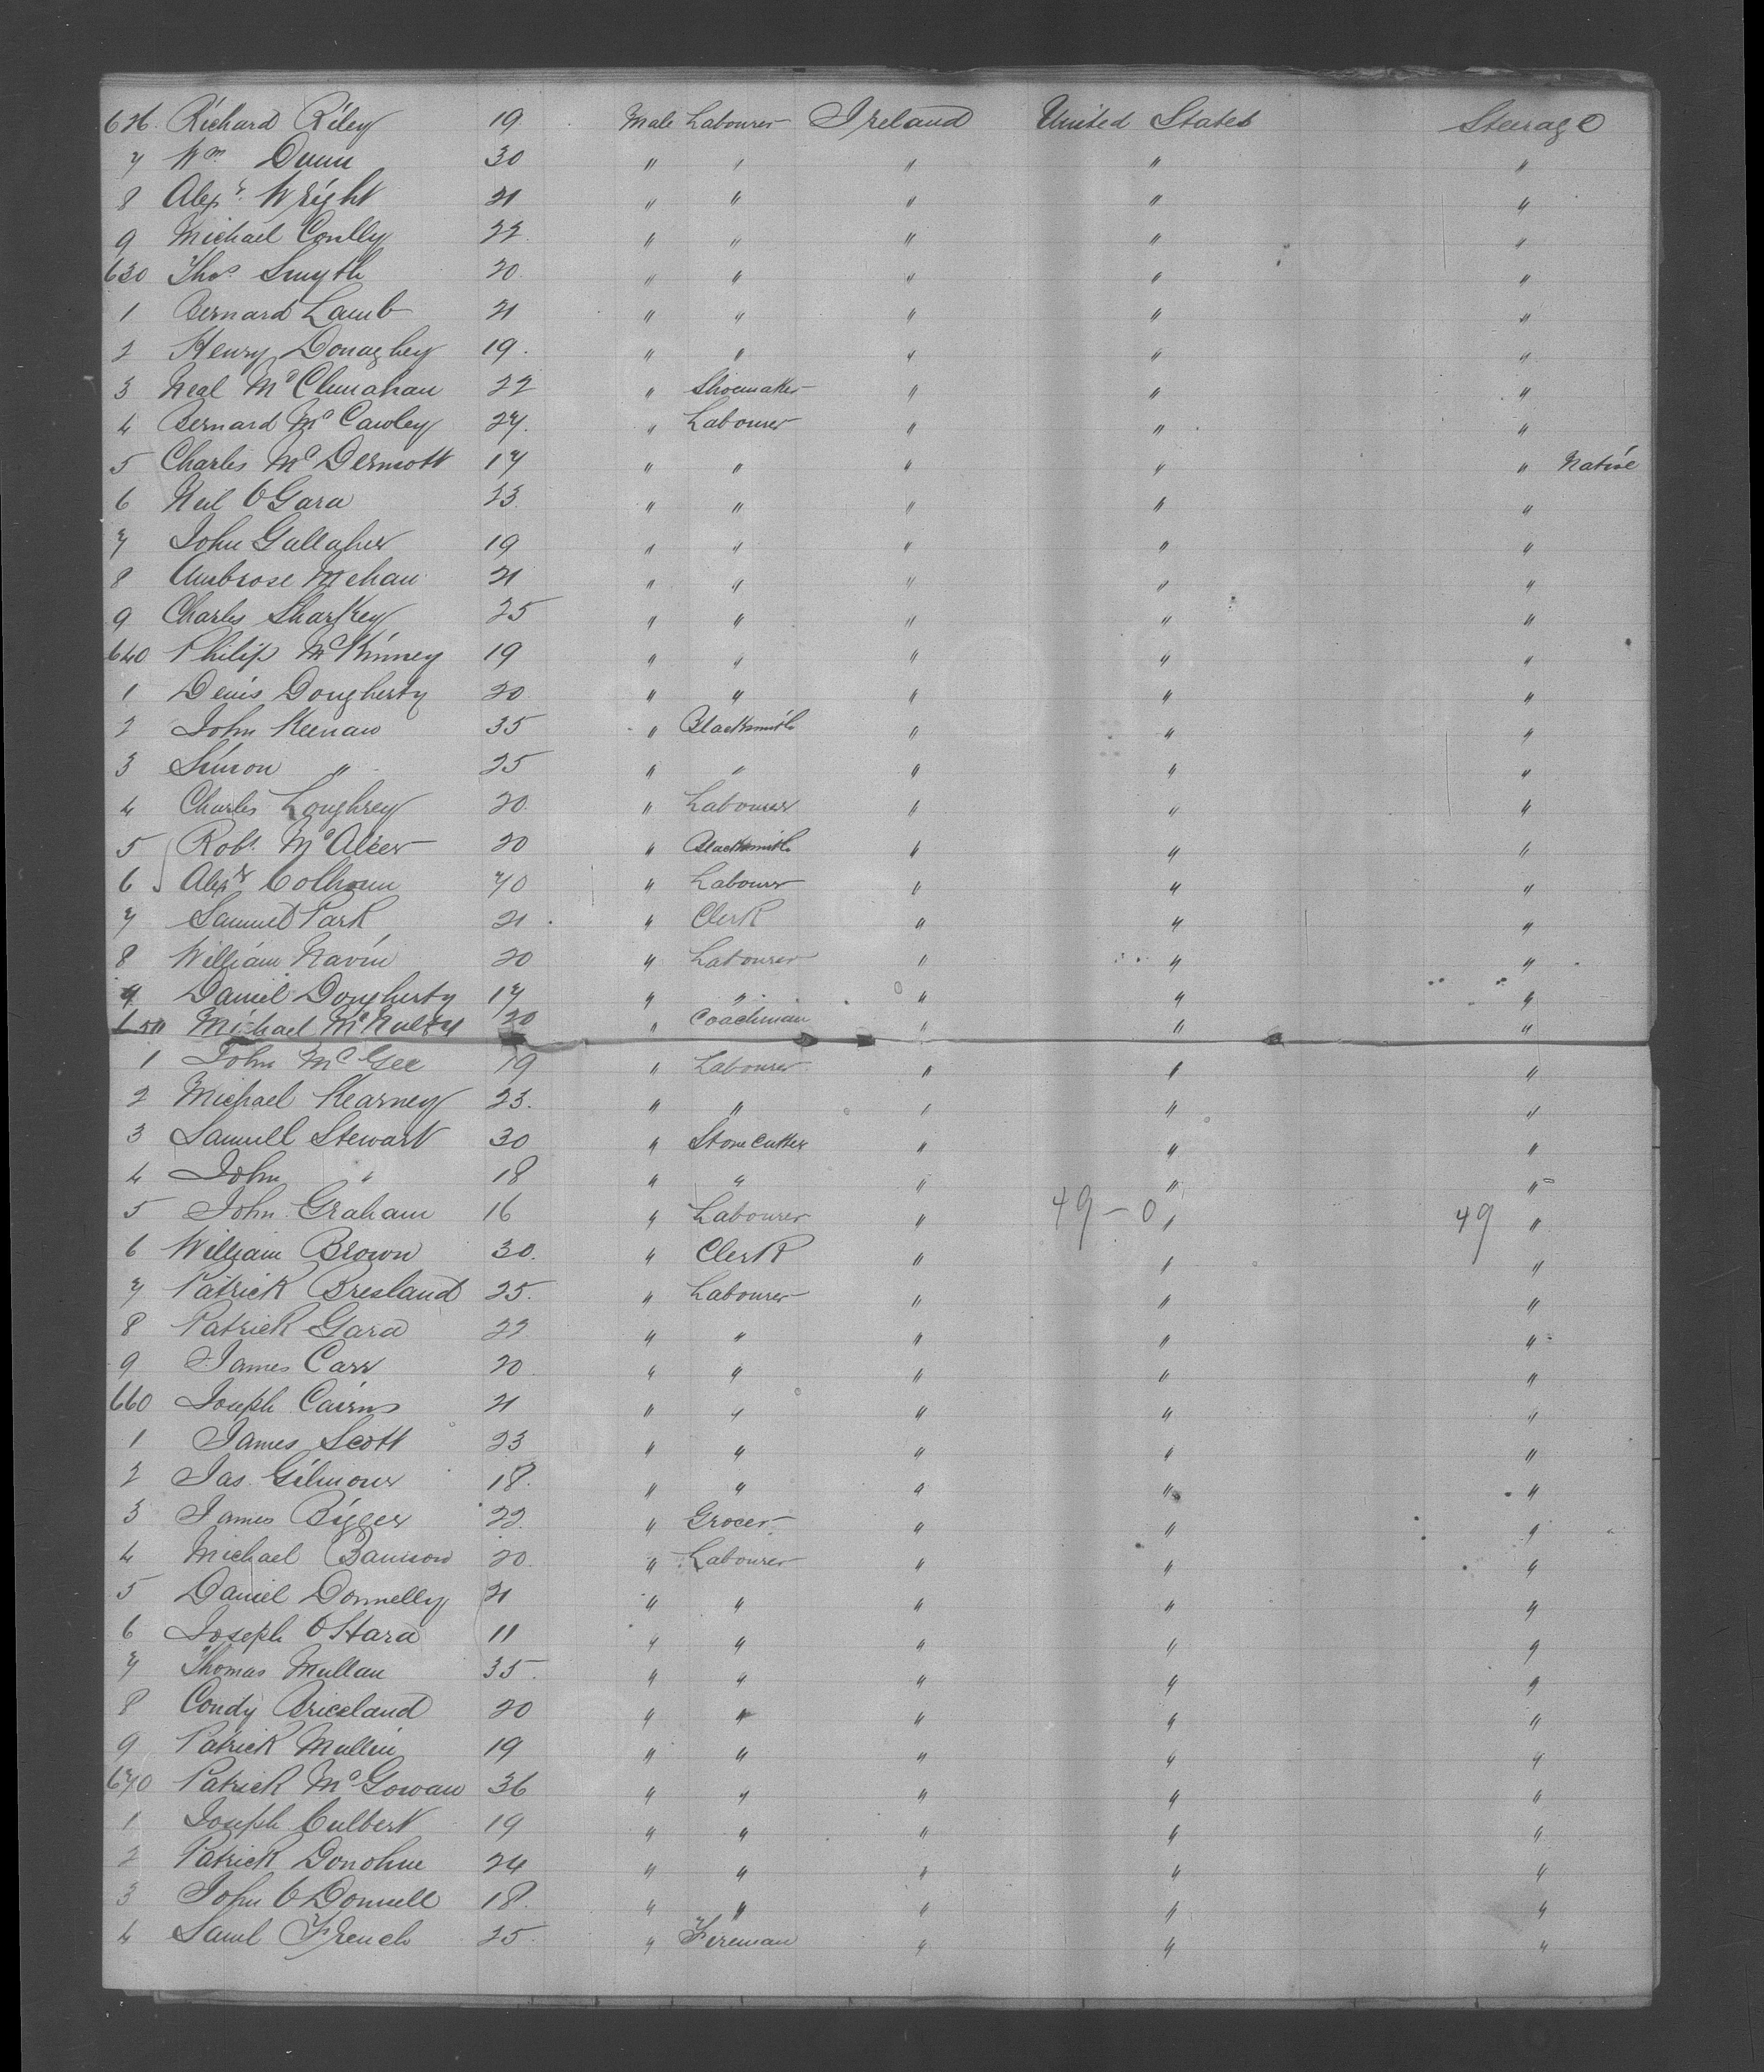 626. Richard Riley 19 Male Labourer Ireland United States Steerage
7 Wm Dunn 30 " " " " "
8 Alexr Wright 21 " " " " "
9 Michael Conlly 22 " " " " "
630 Thos Smyth 20 " " " " "
1 Bernard Lamb 21 " " " " "
2 Henry Donaghey 19 " " " " "
3 Neal McClenahan 22 " Shoemaker " " "
4 Bernard McCawley 27 " Labourer " " "
5 Charles McDermott 17 " " " " " Native
6 Neil O'Gara 23 " " " " "
7 John Gallaher 19 " " " " "
8 Ambrose Mehan 21 " " " " "
9 Charles Sharkey 25 " " " " "
640 Philip McKinney 19 " " " " "
1 Denis Dougherty 20 " " " " "
2 John Keenan 35 " Blacksmith " " "
3 Simon " 25 " " " " "
4 Charles Loughrey 20 " Labourer " " "
5 Robt. McAleer 20 " Blacksmith " " "
6 Alexr Colhoun 40 " Labourer " " "
7 Samuel Park 21 " Clerk " " "
8 William Navin 20 " Labourer " " "
9 Daniel Dougherty 17 " " " " "
650 Michael McNulty 20 " Coachman " " "
1 John McGee 19 " Labourer " " "
2 Michael Kearney 23. " " " " "
3 Samuell Stewart 30 " Stone Cutter " " "
4 John " 18 " " " " "
5 John Graham 16 " Labourer " 49-0 " 49 "
6 William Brown 30. " Clerk " " "
7 Patrick Bresland 25. " Labourer " " "
8 Patrick Gara 22 " " " " "
9 James Carr 20 " " " " "
660 Joseph Cairns 21 " " " " "
1 James Scott 23 " " " " "
2 Jas. Gilmour 18. " " " " "
3 James Bigger 22. " Grocer " " "
4 Michael 20. " Labourer " " "
5 Daniel Donnelly 21 " " " " "
6 Joseph O'Hara 11 " " " " "
7 Thomas Mullan 35. " " " " "
8 Condy Briceland 20 " " " " "
9 Patrick Mullin 19 " " " " "
670 Patrick McGowan 36 " " " " "
1 Joseph Culbert 19 " " " " "
2 Patrick Donohue 24 " " " " "
3 John O'Donnell 18. " " " " "
4 Saml French 25. " Fireman " " "